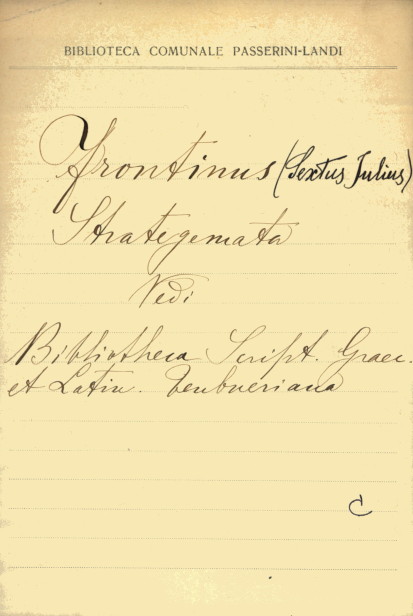 BIBLIOTECA COMUNALE PASSERINI-LANDI
Frontinus (Sextus Julius)
Strategemata
Vedi
Bibliotheca Script. Graec.
et Latin. Teubneriana
C